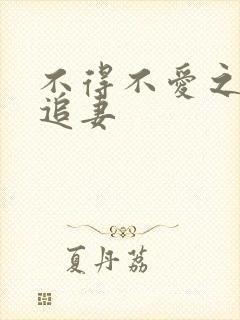 不得不愛之
追妻
夏丹荔